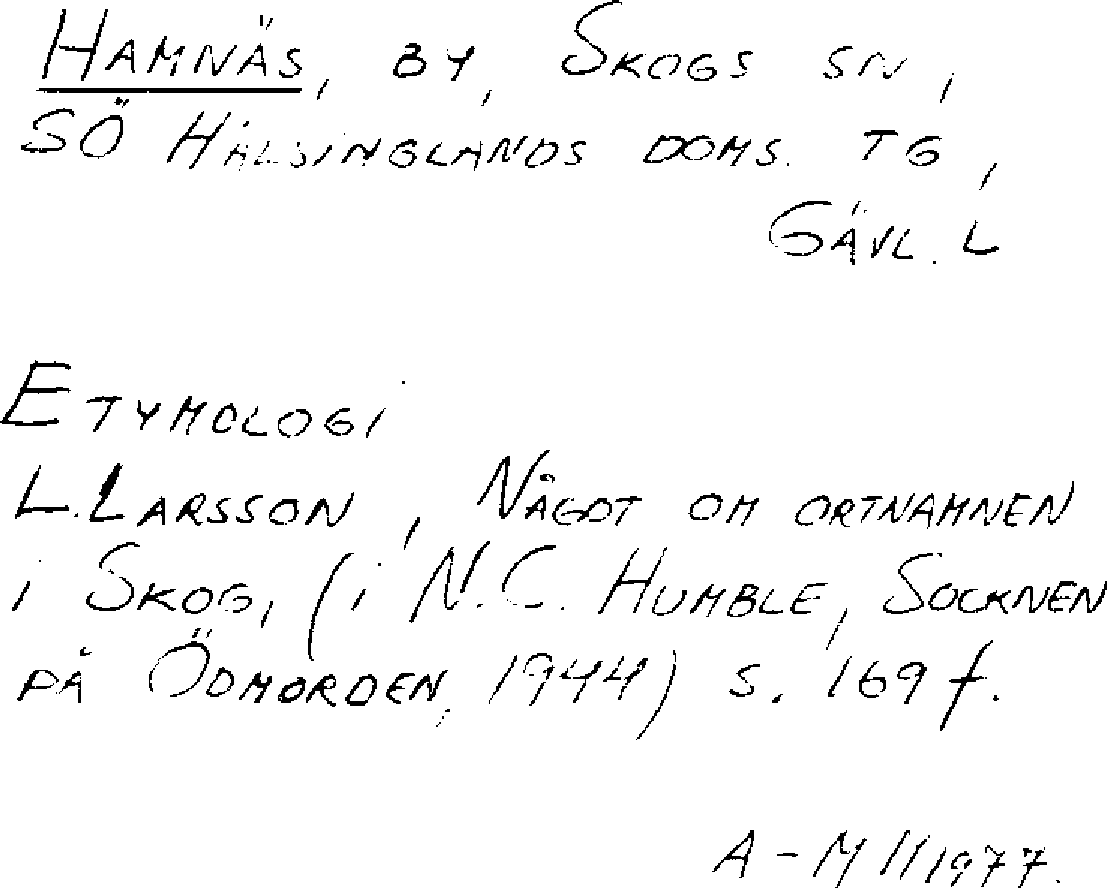 HAMNÄS, BY, SKOGS SN,
SÖ HÄLSINGLANDS DOMS. TG,
GÄVL. L
ETYMOLOGI
L. LARSSON, NÅGOT OM ORTNAMNEN
i SKOG, (i N.C. HUMBLE, SOCKNEN
PÅ ÖDMORDEN, 1944) S. 169 f.
A-M H 1977.